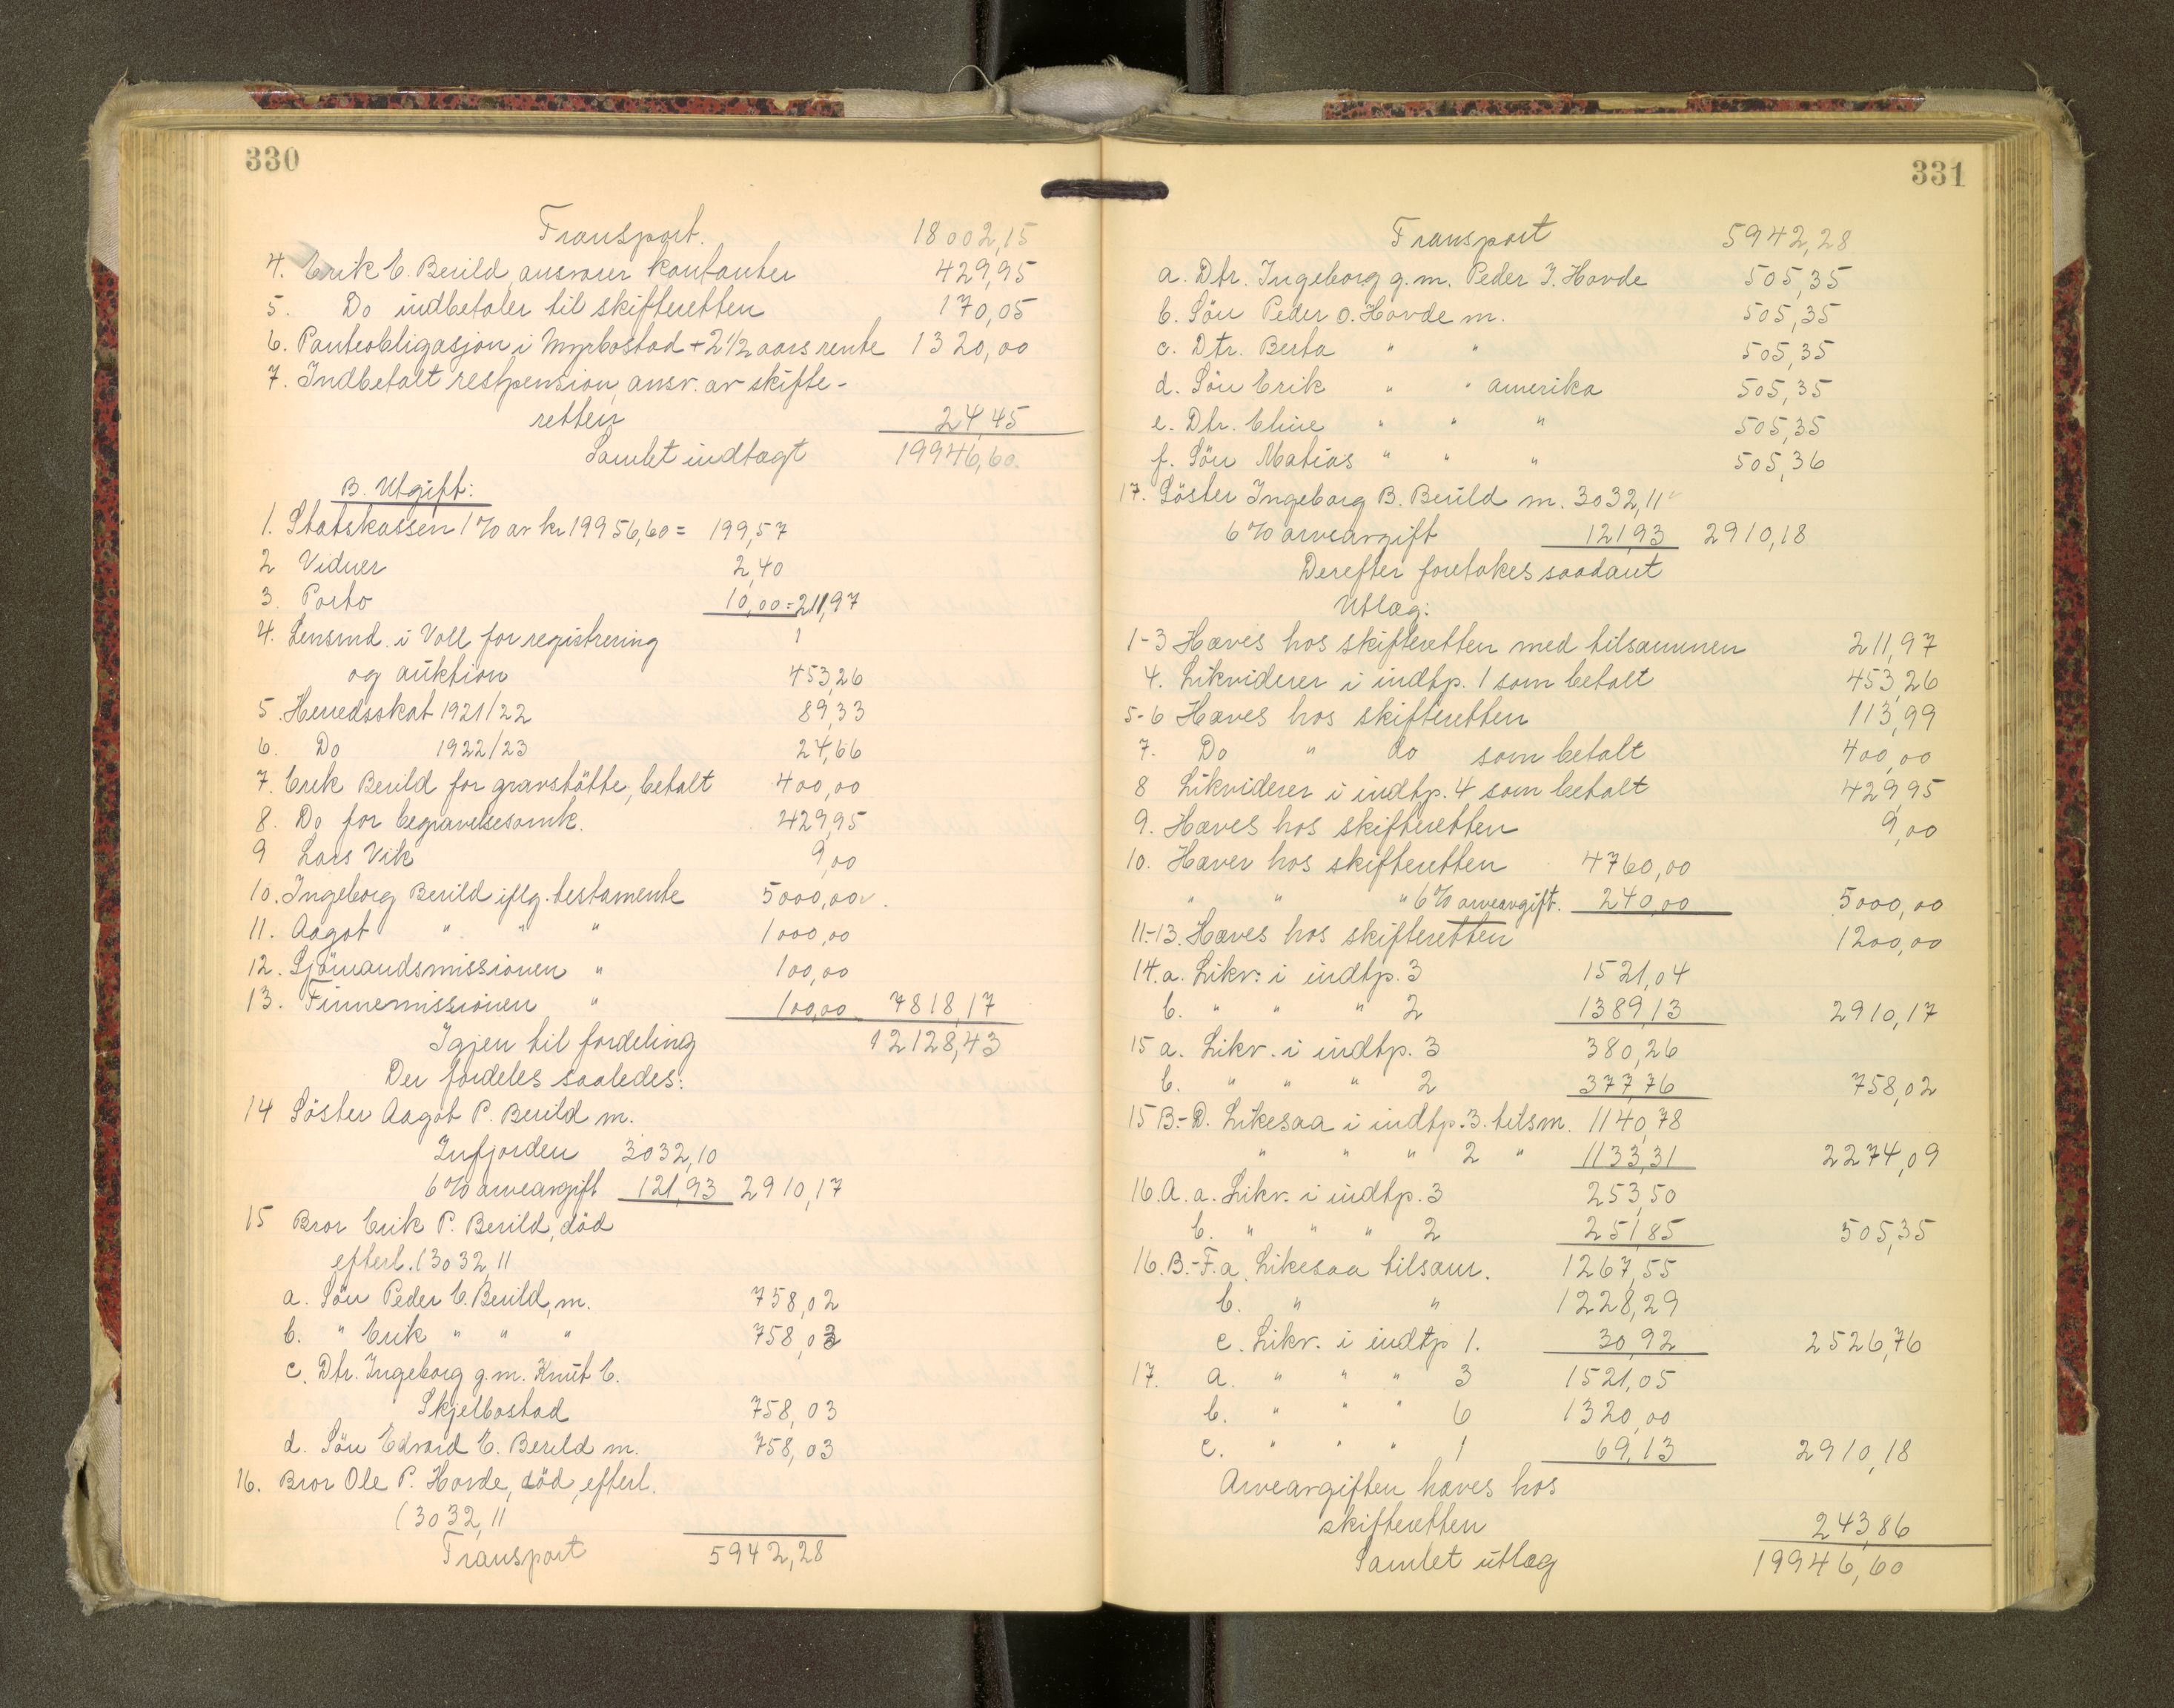 330
Transport. 18002,15
4. Erik E. Berild ansvarer kontanter 429,95
5. Do indbetaler til skifteretten 170,05
6. Panteobligasjon i Myrbostad + 2 1/2 aars rente 1320,00
7. Indbetalt restpension, ansv. av skifte-
retten 24,45
Samlet indtægt 19946,60.
B. Utgift:
1. Statskassen 1% av kr 19956,60 = 199,57
2 Vidner 2,40
3. Porto 10,00 = 211,97
4. Lensmd. i Voll for registrering
og auktion 453,26
5. Herredsskat 1921/22 89,33
6. Do 1922/23 24,66
7. Erik Berild for gravstötte, betalt 400,00
8. Do for begravelsesomk. 429,95
9 Lars Vik 9,00
10. Ingeborg Berild iflg. testamente 5000,00
11. Aagot " " " 1000,00
12. Sjömandsmissionen " 100,00
13. Finnemissionen " 100,00 7818,17
Igjen til fordeling 12128,43
Der fordeles saaledes:
14 Söster Aagot P. Berild m.
Infjorden 3032,10
6% arveavgift 121,93 2910,17
15 Bror Erik P. Berild, död
efterl. (3032,11
a. Sön Peder E. Berild, m. 758,02
b. " Erik " " " 758,03
c. Dtr. Ingeborg g.m. Knut E.
Skjelbostad 758,03
d. Sön Edvard E. Berild m. 758,03
16. Bror Ole P. Hovde, död, efterl.
(3032,11
Transport 5942,28
331
Transport 5942,28
a. Dtr. Ingeborg g.m. Peder J. Hovde 505,35
b. Sön Peder O. Hovde m. 505,35
c. Dtr. Berta " " 505,35
d. Sön Erik " " amerika 505,35
e. Dtr. Eline " " " 505,35
f. Sön Matias " " " 505,36
17. Söster Ingeborg B. Berild m. 3032,11
6% arveavgift 121,93 2910,18
Derefter foretokes saadant
Utlæg:
1-3 Hæves hos skifteretten med tilsammen 211,97
4. Likviderer i indtp. 1 som betalt 453,26
5-6 Hæves hos skifteretten 113,99
7. Do " do som betalt 400,00
8 Likviderer i indtp. 4 som betalt 429,95
9. Hæves hos skifteretten 9,00
10. Hæver hos skifteretten 4760,00
" " " 6% arveavgift. 240,00 5000,00
11-13. Hæves hos skifteretten 1200,00
14.a. Likv: i indtp. 3 1521,04
b. " " " 2 1389,13 2910,17
15 a. Likv. i indtp. 3 380,26
b. " " " 2 377,76 758,02
15 B.-D. Likesaa i indtp. 3. tilsm. 1140,78
" " " 2 " 1133,31 2274,09
16.A. a. Likv. i indtp. 3 253,50
b. " " " 2 251,85 505,35
16.B.-F. a. Likesaa tilsam. 1267,55
b. " " 1228,29
c. Likv. i indtp 1. 30,92 2526,76
17. a. " " " 3 1521,05
b. " " " 6 1320,00
c. " " " 1 69,13 2910,18
Arveavgiften hæves hos
skifteretten 243,86
Samlet utlæg 19946,60